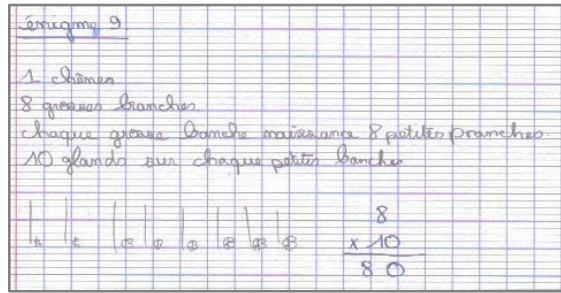 énigme 9
1 chênes
8 grosses branches.
chaque grosse banche naissance 8 petites pranches.
10 glands sur chaque petites banches
8
x 10
8 0